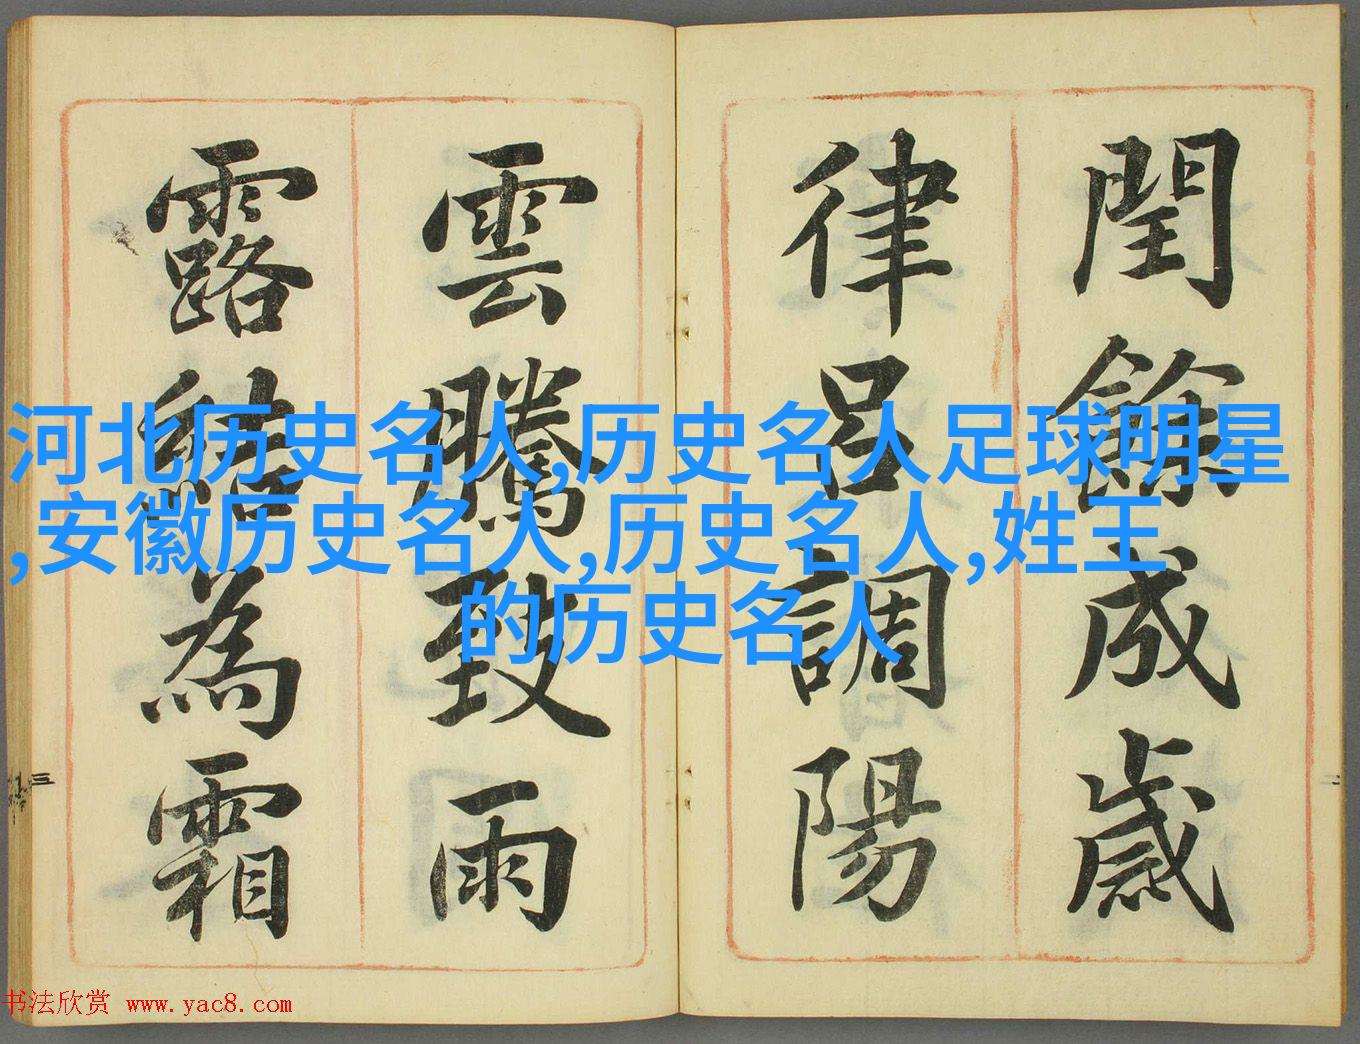 閏餘成歲
律呂調陽
雲騰致雨
露結為霜
河北历史名人,历史名人足球明星
,安徽历史名人,历史名人,姓王
的历史名人
三
书法欣赏 www.yac8.com